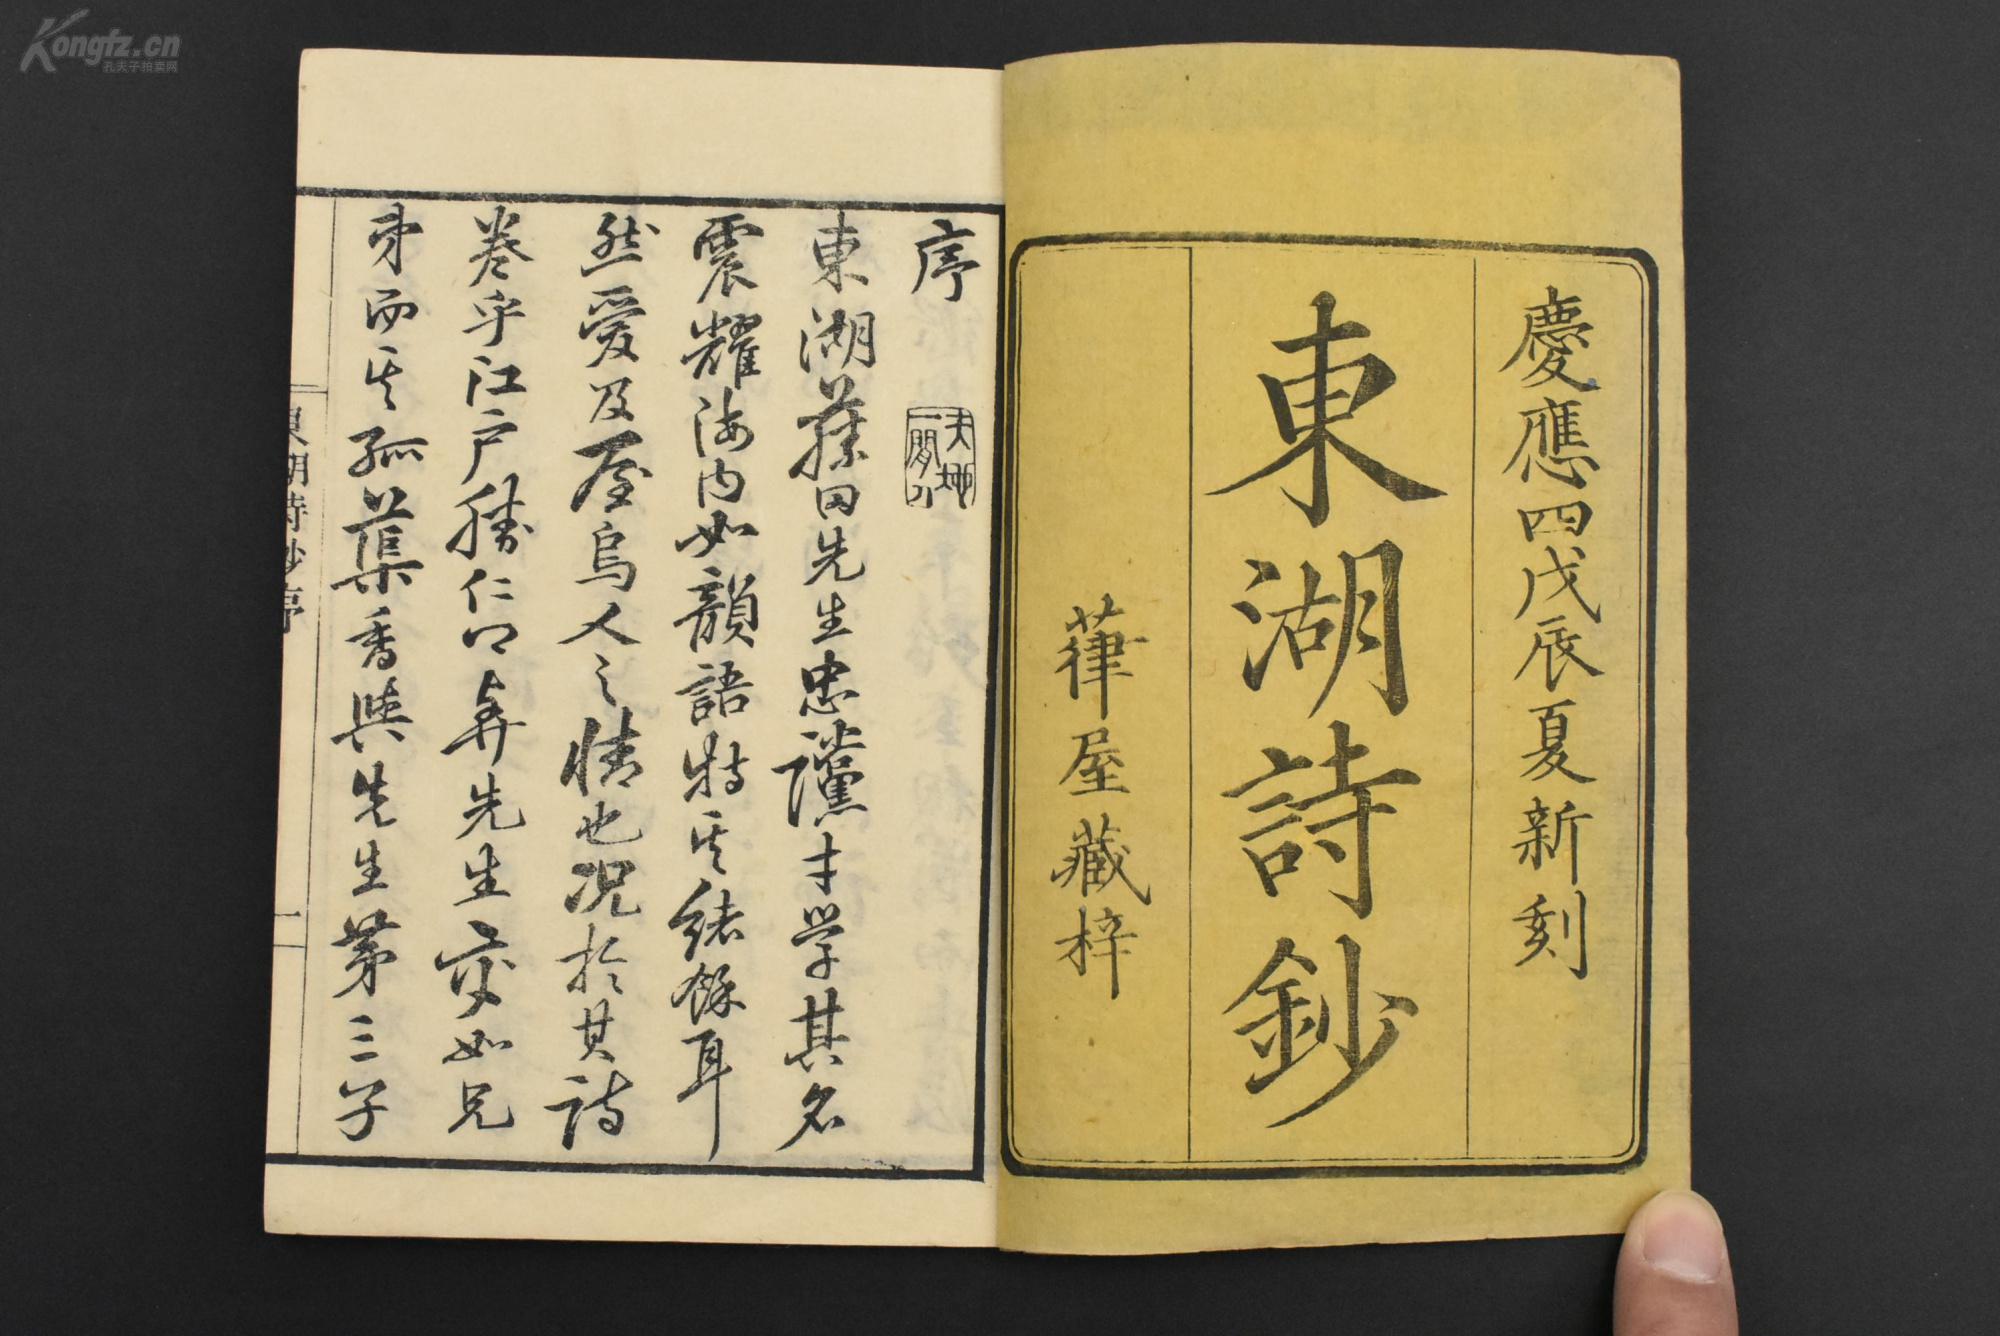 慶應四戊辰夏新刻
東湖詩鈔
葎屋藏梓
序
天地一閒人
東湖藤田先生忠讜才学其名
震耀海内如韻語特其緒餘耳
然愛及屋烏人之情也况於其詩
巻乎江戸勝仁卿弆先生交如兄
弟而其孤蕖香與先生第三子
東湖詩鈔序
一
Kongfz.cn
孔夫子拍卖网